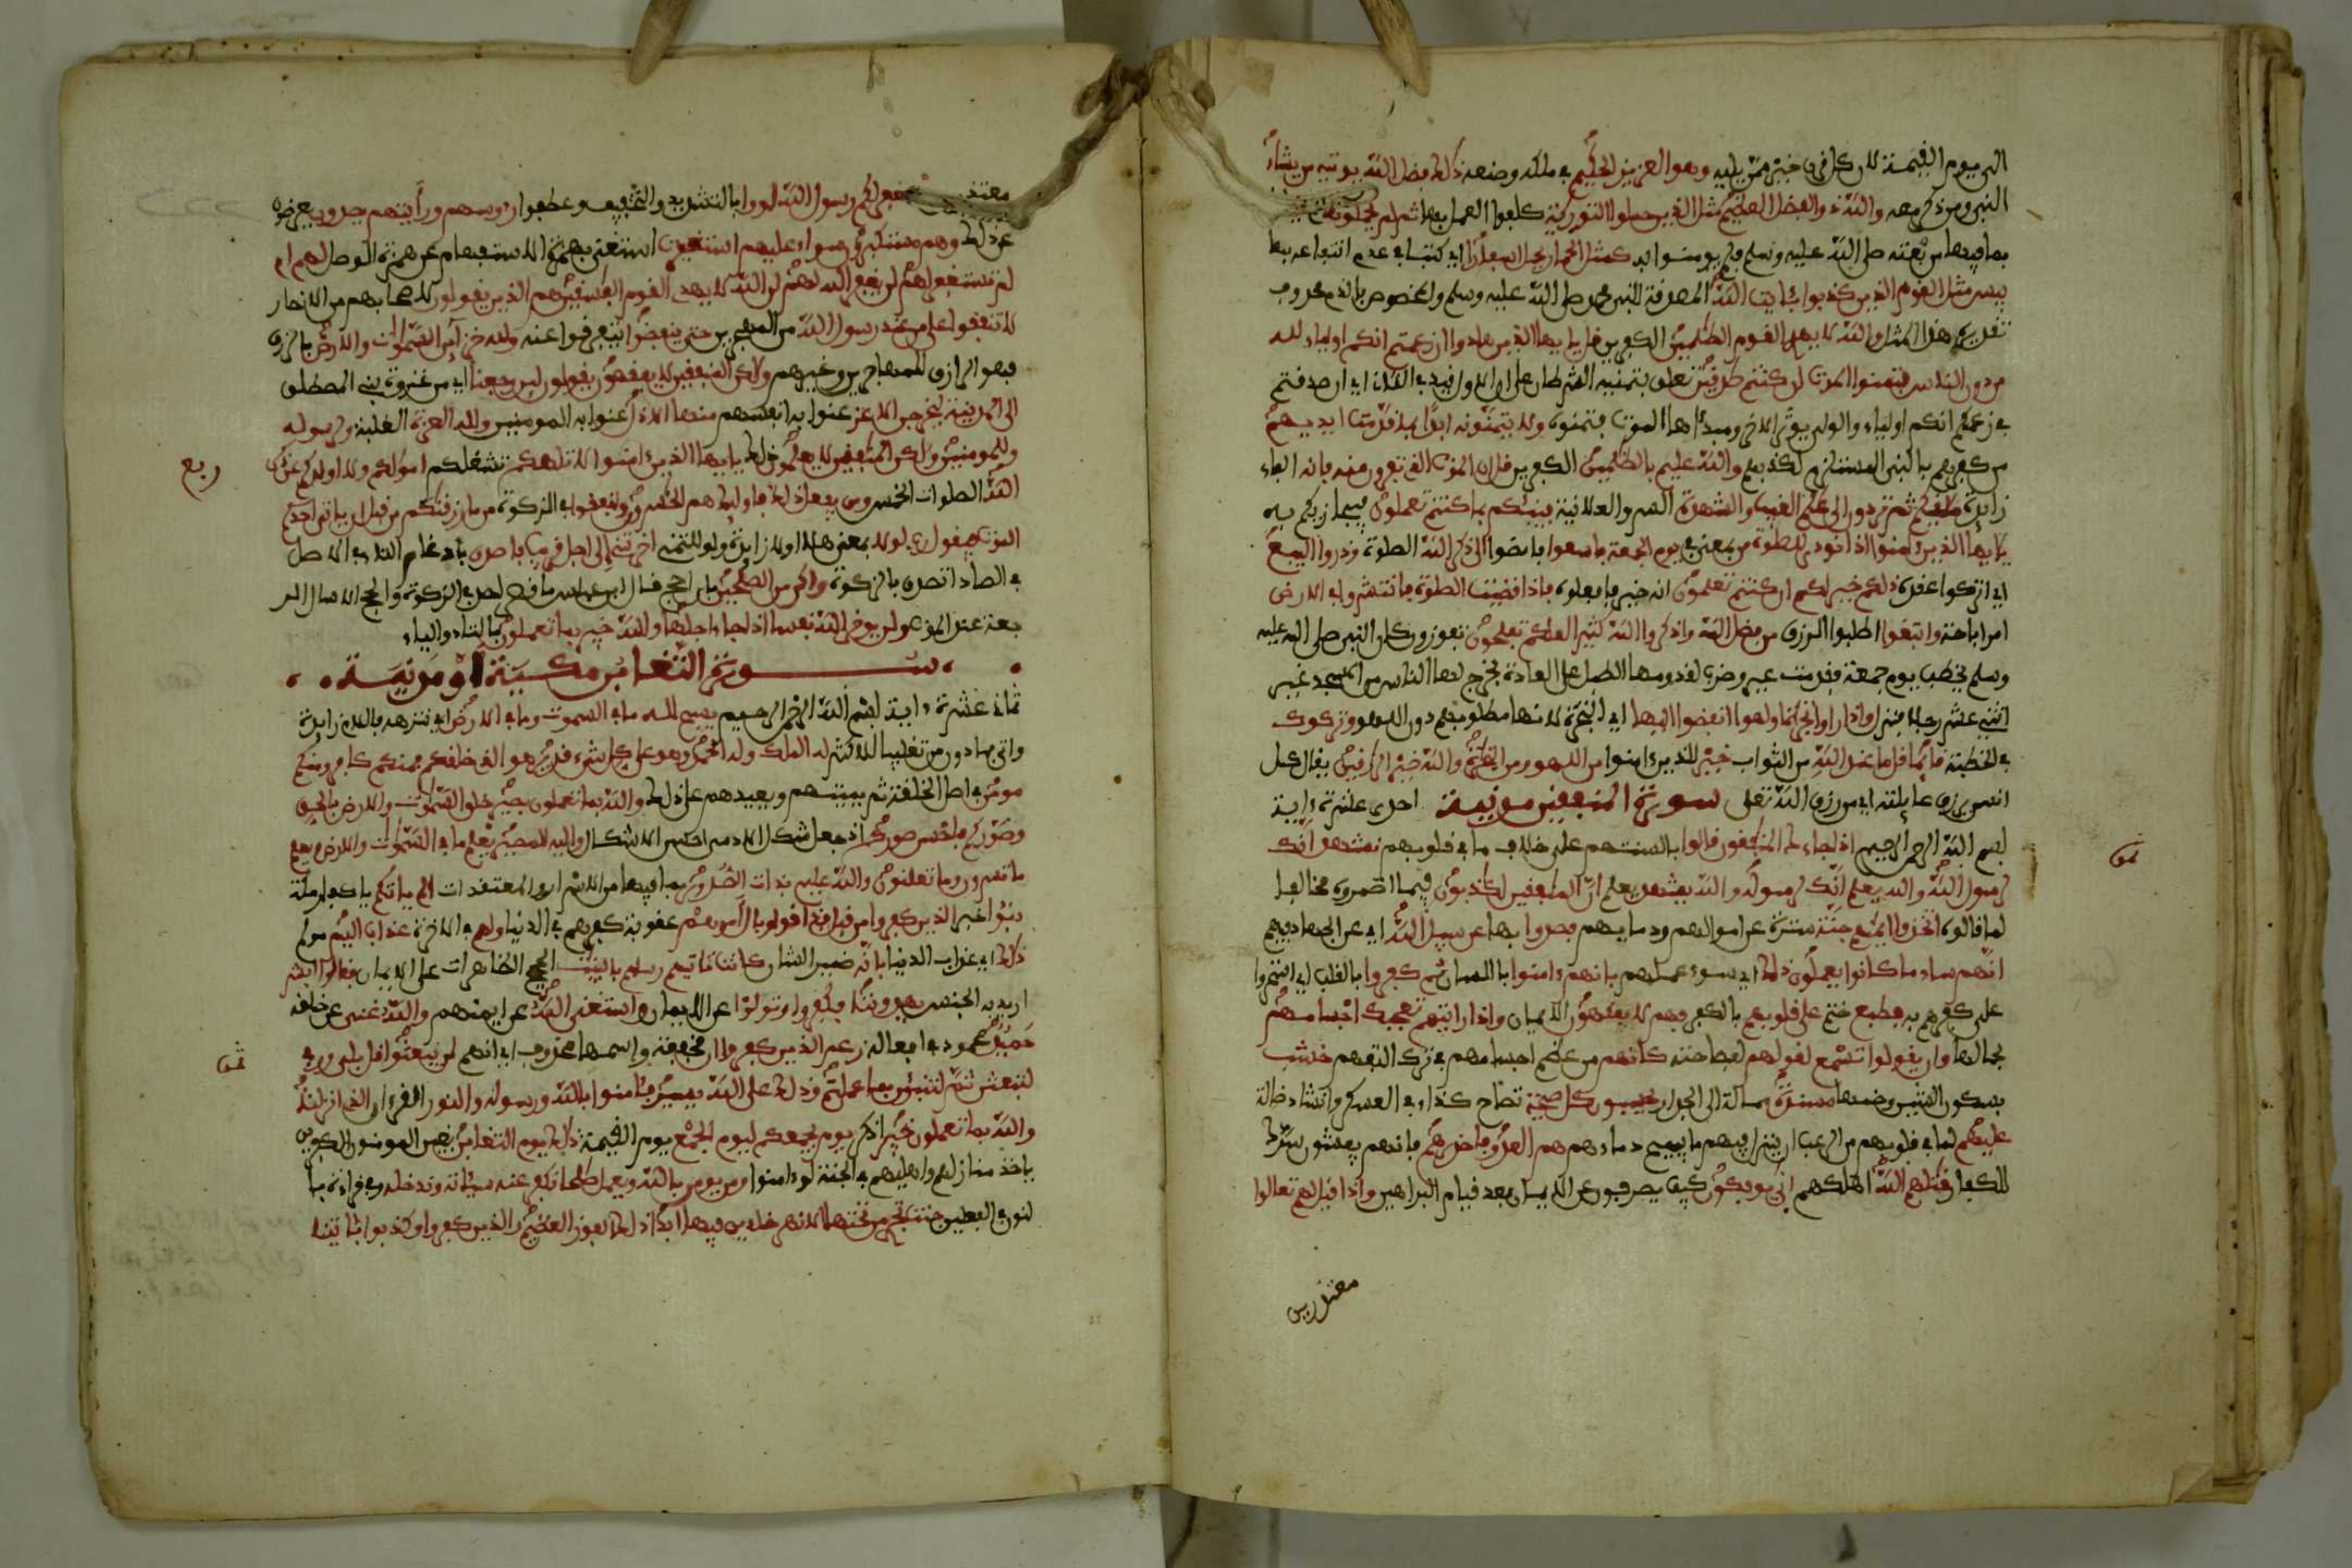 الى يوم القيمة لان كل قرن خير ممن يليه وهو العزيز الحكيم في ملكه وصنعه ذلك فضل الله يوتيه من يشاء
النبي ومن ذكر معه والله ذو الفضل العظيم مثل الذين حملوا التورية كلفوا العمل بها ثم لم يحملوها
بما فيها من نعته صلى الله عليه وسلم فلم يومنوا به كمثل الحمار يحمل اسفارا اي كتبا في عدم انتفاعه بها
بيس مثل القوم الذين كذبوا بئايت الله المصدقة للنبي محمد صلى الله عليه وسلم والمخصوص بالذم محذوف
تقديره هذا المثل والله لا يهدي القوم الظلمين الكفرين قل يايها الذين هادوا ان زعمتم انكم اولياء لله
من دون الناس فتمنوا الموت ان كنتم صدقين تعلق بتمنيه الشرطان على ان الاول قيد في الثاني اي ان صدقتم
في زعمكم انكم اولياء والولي يوثر الاخرة ومبدؤها الموت فتمنوه ولا يتمنونه ابدا بما قدمت ايديهم
من كفرهم بالنبي المستلزم لكذبهم والله عليم بالظلمين الكفرين قل ان الموت الذي تفرون منه فانه الفاء
زايدة ملقيكم ثم تردون الى علم الغيب والشهدة السر والعلانية فينبئكم بما كنتم تعملون فيجازيكم به
يايها الذين ءامنوا اذا نودي للصلوة من بمعنى في يوم الجمعة فاسعوا فامضوا الى ذكر الله الصلوة وذروا البيع
اي اتركوا عقده ذلكم خير لكم ان كنتم تعلمون انه خير فافعلوه فاذا قضيت الصلوة فانتشروا في الارض
امر اباحة وابتغوا اطلبوا الرزق من فضل الله واذكروا الله كثيرا لعلكم تفلحون تفوزون كان النبي صلى الله عليه
وسلم يخطب يوم جمعة فقدمت عير وضرب لقدومها الطبل على العادة فخرج لها الناس من المسجد غير
اثني عشر رجلا فنزل واذا راوا تجرة او لهوا انفضوا اليها اي التجرة لانها مطلوبهم دون اللهو وتركوك
في الخطبة قائما قل ما عند الله من الثواب خير للذين ءامنوا من اللهو ومن التجرة والله خير الرازقين يقال كل
انسن يرزق عايلته اي من رزق الله تعلى سورة المنفقين مدنية احدى عشرة ءاية
بسم الله الرحمن الرحيم اذا جاءك المنفقون قالوا بالسنتهم على خلاف ما في قلوبهم نشهد انك
لرسول الله والله يعلم انك لرسوله والله يشهد يعلم ان المنفقين لكذبون فيما اضمروه مخالفا
لما قالوه اتخذوا ايمنهم جنة سترة عن اموالهم ودمايهم فصدوا بها عن سبيل الله اي عن الجهاد فيهم
انهم ساء ما كانوا يعملون ذلك اي سوء عملهم بانهم ءامنوا باللسان ثم كفروا بالقلب اي استمروا
على كفرهم به فطبع ختم على قلوبهم بالكفر فهم لا يفقهون الايمان واذا رايتهم تعجبك اجسامهم
لجمالها وان يقولوا تسمع لقولهم لفصاحته كانهم من عظم اجسامهم في ترك التفهم خشب
بسكون الشين وضمها مسندة ممالة الى الجدار يحسبون كل صيحة تصاح كنداء في العسكر وانشاد ضالة
عليهم لما في قلوبهم من الرعب ان ينزل فيهم ما يبيح دماءهم هم العدو فاحذرهم فانهم يفشون سرك
للكفار قتلهم الله اهلكهم انى يوفكون كيف يصرفون عن الايمان بعد قيام البراهين واذا قيل لهم تعالوا
معتذرين
يستغفر لكم رسول الله لووا بالتشديد والتخفيف عطفوا رءوسهم ورأيتهم يصدون يعرضون
عن ذلك وهم مستكبرون سواء عليهم استغفرت استغنى بهمزة الاستفهام عن همزة الوصل لهم ام
لم تستغفر لهم لن يغفر الله لهم ان الله لا يهدي القوم الفسقين هم الذين يقولون لاصحابهم من الانصار
لا تنفقوا على من عند رسول الله من المهجرين حتى ينفضوا يتفرقوا عنه ولله خزآين السموات والارض بالرزق
فهو الرازق للمهاجرين وغيرهم ولكن المنفقين لا يفقهون يقولون لين رجعنا اي من غزوة بني المصطلق
الى المدينة ليخرجن الاعز عنوا به انفسهم منها الاذل عنوا به المومنين ولله العزة الغلبة ولرسوله
وللمومنين ولكن المنفقين لا يعلمون ذلك يايها الذين ءامنوا لا تلهكم تشغلكم امولكم ولا اولدكم عن ذكر
ربع
الله الصلوات الخمس ومن يفعل ذلك فاوليك هم الخسرون وانفقوا في الزكوة من ما رزقنكم من قبل ان ياتي احدكم
الموت فيقول رب لولا بمعنى هلا او لا زايدة ولو للتمني اخرتني الى اجل قريب فاصدق بادغام التاء في الاصل
في الصاد اتصدق بالزكوة واكن من الصلحين بان احج قال ابن عباس ما قصر احد في الزكوة والحج الا سال الر
جعة عند الموت ولن يوخر الله نفسا اذا جاء اجلها والله خبير بما تعملون بالتاء والياء
سورة التغابن مكية او مدنية
ثماني عشرة ءاية بسم الله الرحمن الرحيم يسبح لله ما في السموت وما في الارض اي ينزهه فاللام زايدة
واتي بما دون من تغليبا للاكثر له الملك وله الحمد وهو على كل شيء قدير هو الذي خلقكم فمنكم كافر ومنكم
مومن في اصل الخلقة ثم يميتهم ويعيدهم على ذلك والله بما تعملون بصير خلق السموت والارض بالحق
وصوركم فاحسن صوركم اذ جعل شكل الادمي احسن الاشكال واليه المصير يعلم ما في السموت والارض ويعلم
ما تسرون وما تعلنون والله عليم بذات الصدور بما فيها من الاسرار والمعتقدات الم ياتكم يا كفار مكة
نبؤا خبر الذين كفروا من قبل فذاقوا وبال امرهم عقوبة كفرهم في الدنيا ولهم في الاخرة عذاب اليم مولم
ذلك اي عذاب الدنيا بانه ضمير الشان كانت تاتيهم رسلهم بالبينت الحجج الظاهرات على الايمان فقالوا ابشر
اريد به الجنس يهدوننا فكفروا وتولوا عن الايمان واستغنى الله عن ايمنهم والله غني عن خلقه
حميد محمود في افعاله زعم الذين كفروا ان مخففة واسمها محذوف اي انهم لن يبعثوا قل بلى وربي
ثمن
لتبعثن ثم لتنبؤن بما عملتم وذلك على الله يسير فئامنوا بالله ورسوله والنور القرءان الذي انزلنا
والله بما تعملون خبير اذكر يوم يجمعكم ليوم الجمع يوم القيمة ذلك يوم التغابن يغبن المومنون الكفرين
باخذ منازلهم واهليهم في الجنة لو ءامنوا ومن يومن بالله ويعمل صلحا نكفر عنه سيئاته وندخله وفي قراءة باـ
لنون في الفعلين جنت تجري من تحتها الانهر خلدين فيها ابدا ذلك الفوز العظيم والذين كفروا وكذبوا بئايتنا
ثمن